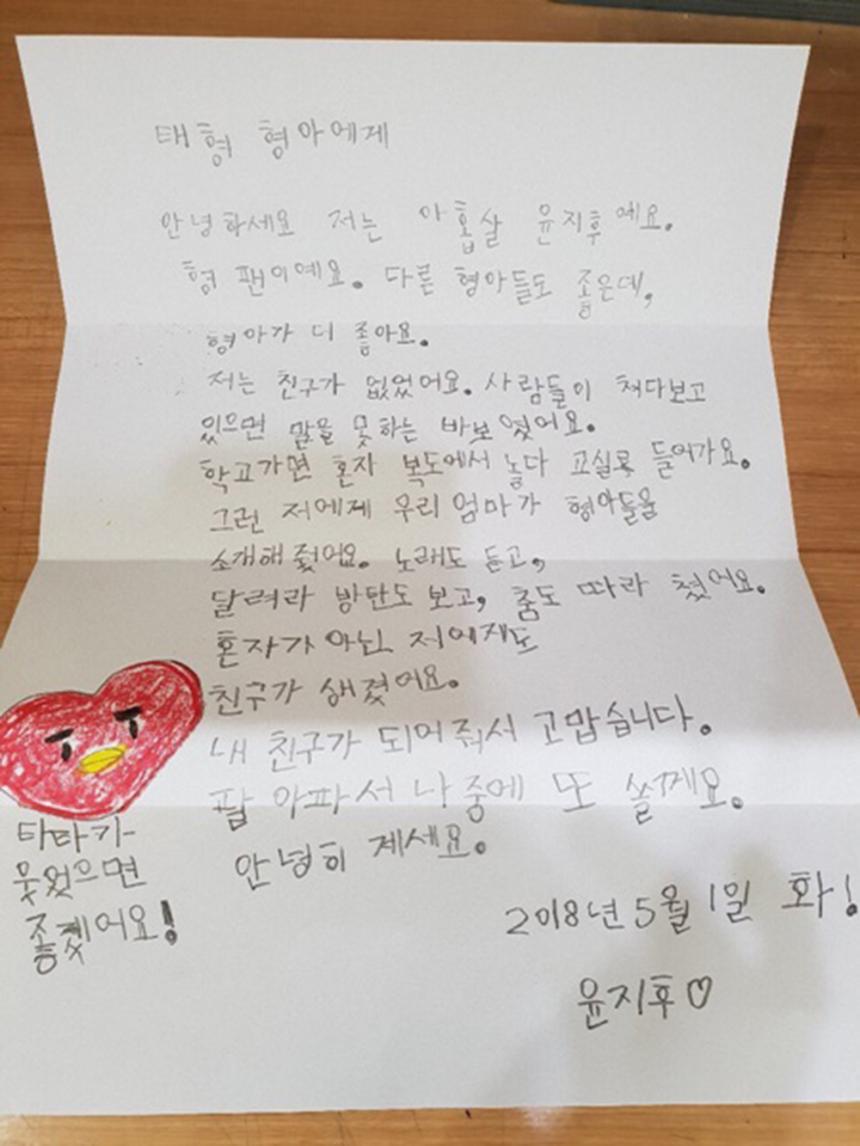 태형 형아에게
안녕하세요 저는 아홉살 윤지후예요.
형 팬이예요. 다른 형아들도 좋은데,
형아가 더 좋아요.
저는 친구가 없었어요. 사람들이 쳐다보고
있으면 말을 못하는 바보였어요.
학교가면 혼자 복도에서 놀다 교실로 들어가요.
그런 저에게 우리 엄마가 형아들을
소개해 줬어요. 노래도 듣고,
달려라 방탄도 보고, 춤도 따라 췄어요.
혼자가 아닌 저에게도
친구가 생겼어요.
내 친구가 되어줘서 고맙습니다.
팔 아파서 나중에 또 쓸께요.
안녕히 계세요.
타타가
웃었으면
좋겠어요!
2018년 5월 1일 화!
윤지후♡